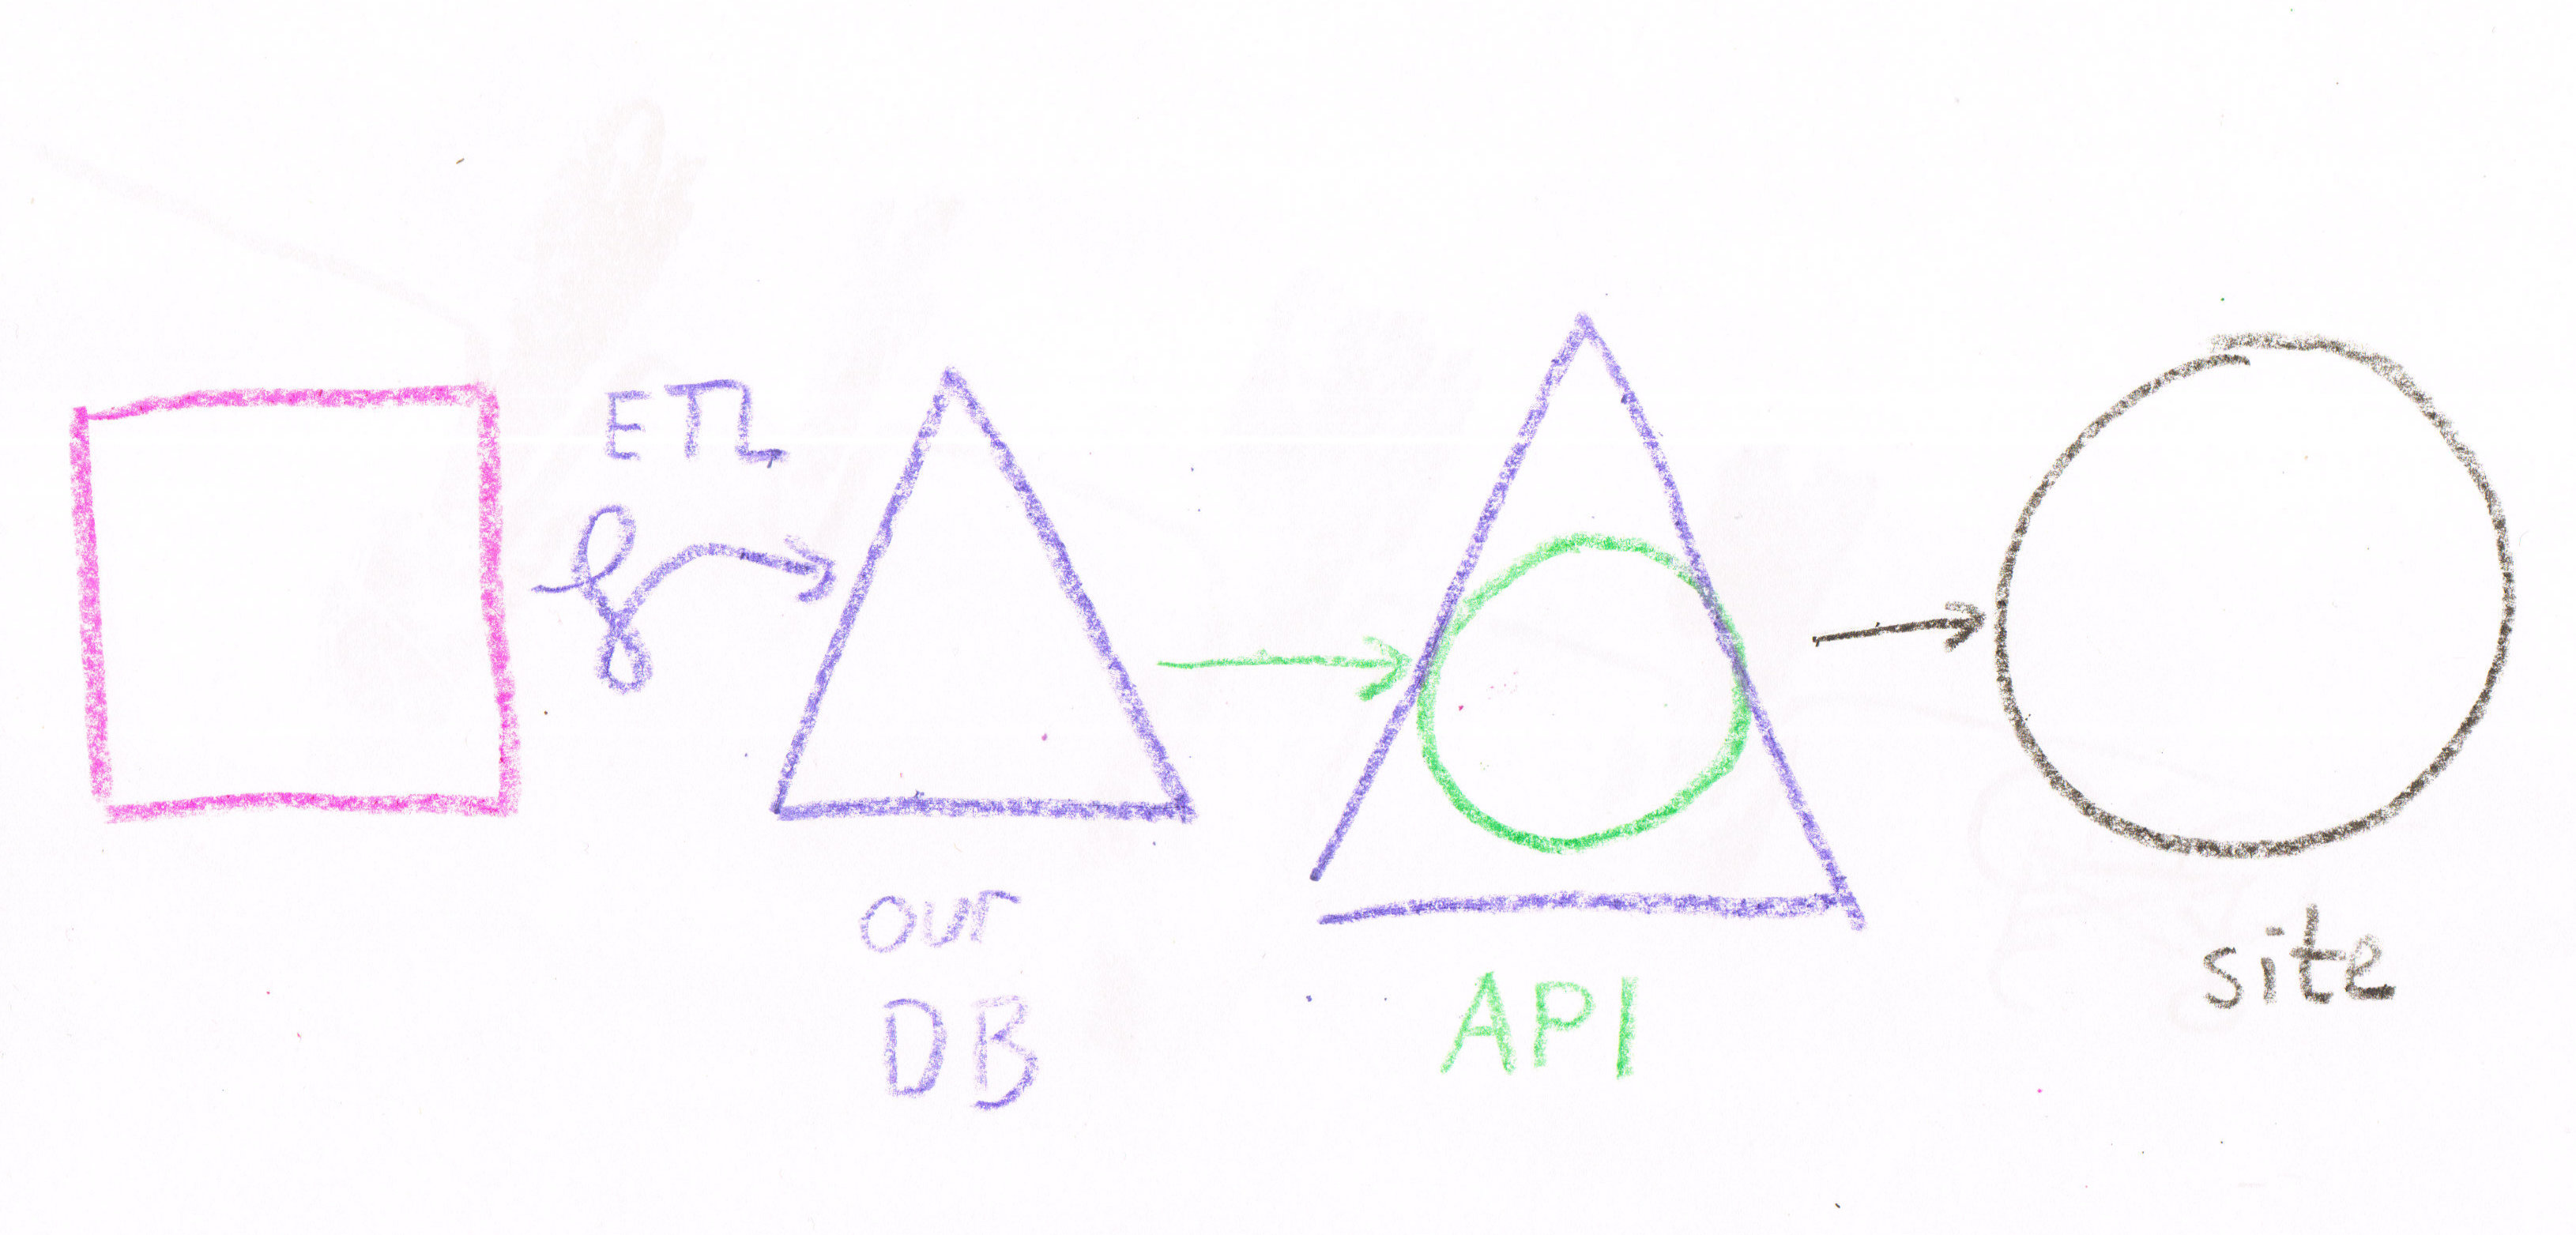 ETL
our
DB
API
site